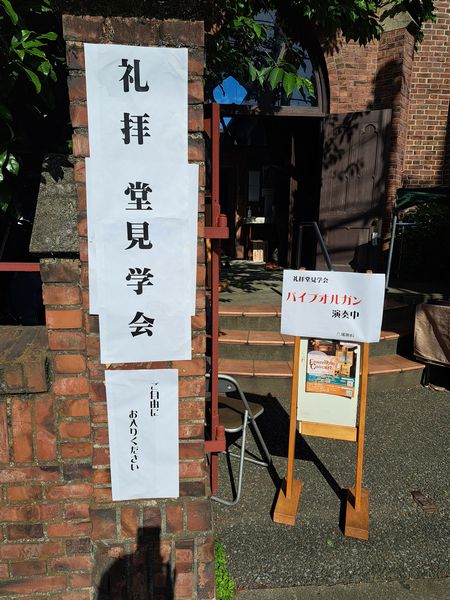 礼拝堂見学会
ご自由に
お入りください
礼拝堂見学会
パイプオルガン
演奏中
入場無料